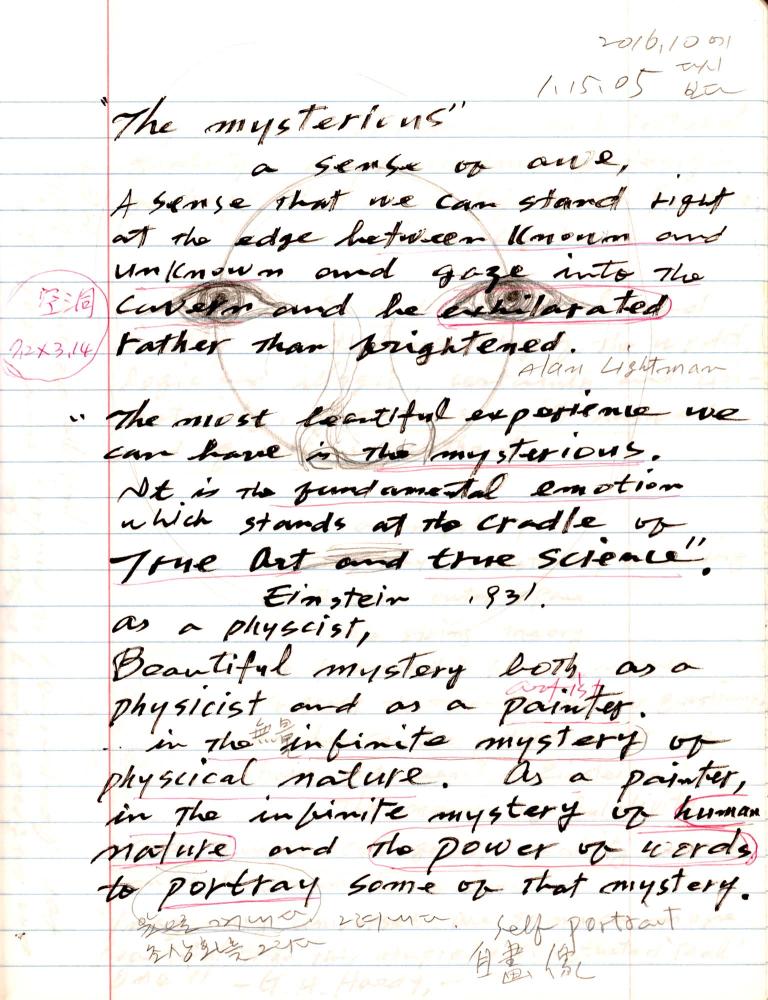 2016.10에
1.15.05 다시
보다
"The mysterious"
a sense of awe,
A sense that we can stand right
at the edge between Known and
unKnown and gaze into the
空洞 cavern and be exhilarated
7.2x3,14 rather than frightened.
Alan Lightman
"The most beautiful experience we
can have is the mysterious.
It is the fundamental emotion
which stands at the cradle of
True Art and true science".
Einstein 1931.
as a physcist,
Beautiful mystery both as a
artist
physicist and as a painter.
.. in the infinite mystery of
physcical nature. As a painter,
in the infinite mystery of human
nature and the power of words
to portray some of that mystery.
그려내다. self portrait
초상화를 그리다 自畵像